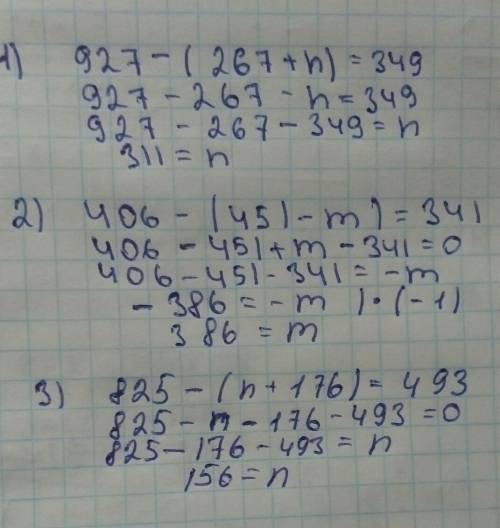 1) 927 - (267 + n) = 349
927 - 267 - n = 349
927 - 267 - 349 = n
311 = n
2) 406 - (451 - m) = 341
406 - 451 + m - 341 = 0
406 - 451 - 341 = -m
- 386 = -m | • (-1)
386 = m
3) 825 - (n + 176) = 493
825 - n - 176 - 493 = 0
825 - 176 - 493 = n
156 = n